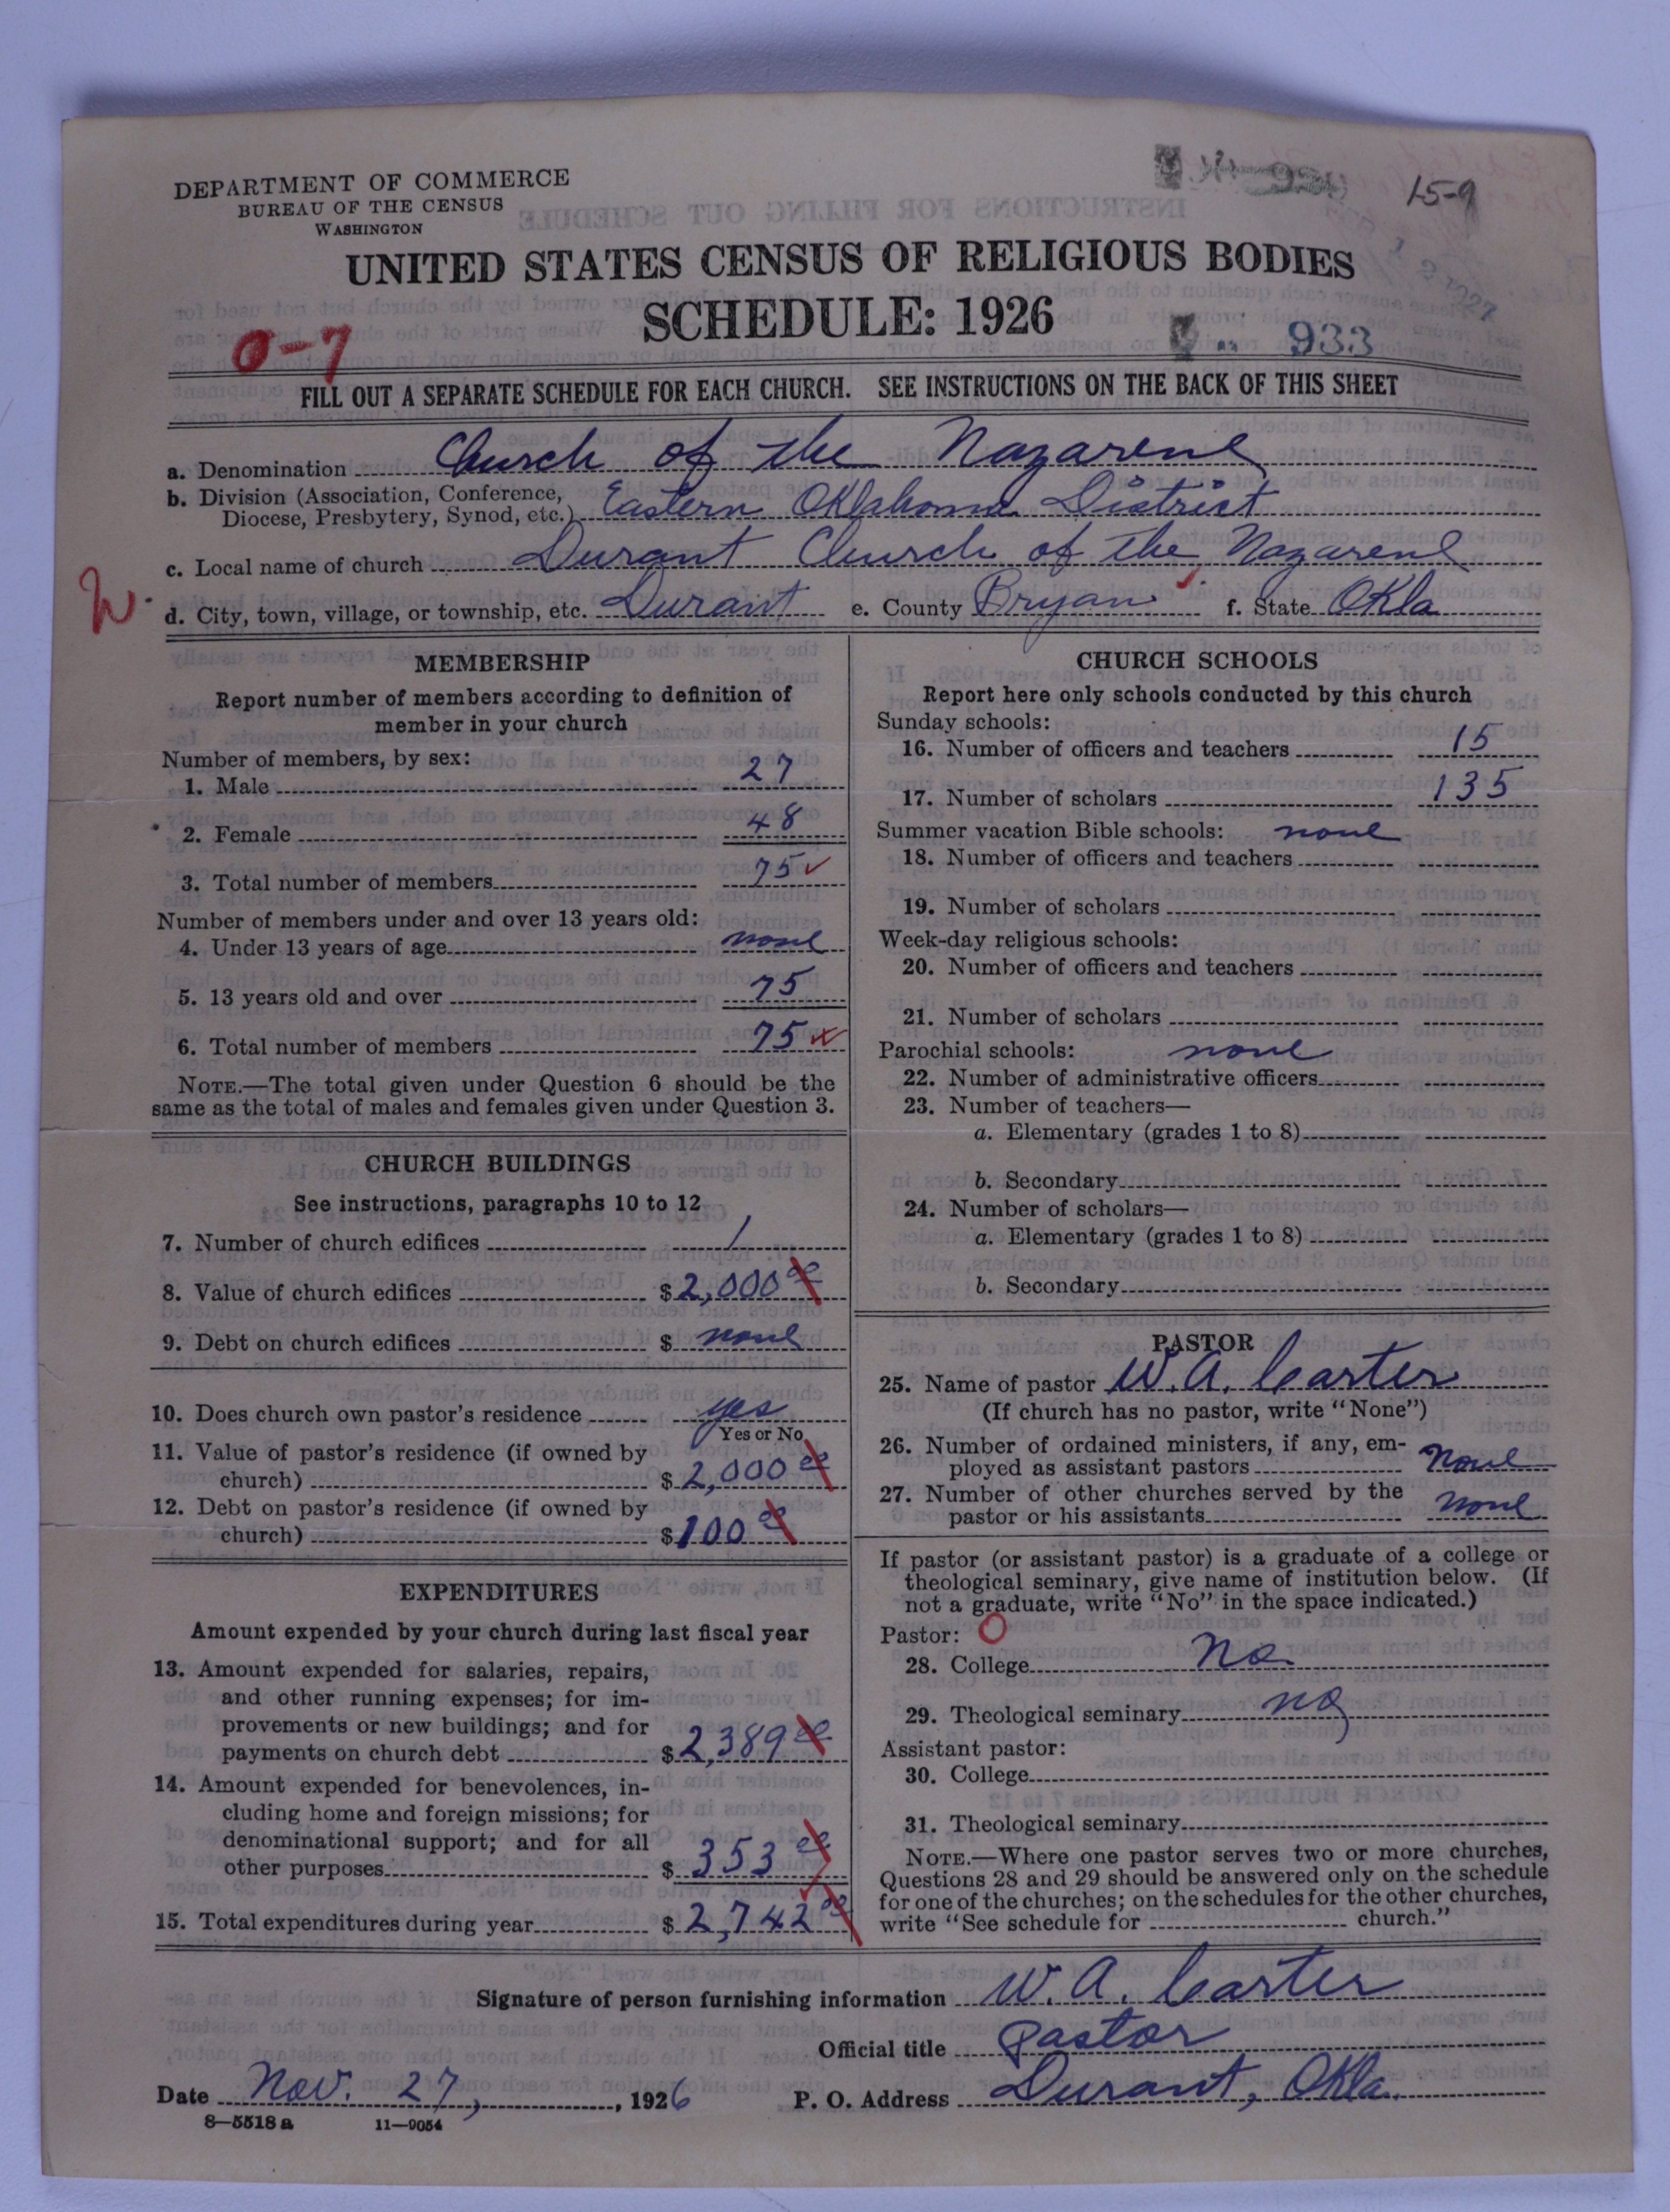 DEPARTMENT OF COMMERCE
BUREAU OF THE CENSUS
WASHINGTON
15-9
UNITED STATES CENSUS OF RELIGIOUS BODIES
SCHEDULE: 1926
0-7
933
FILL OUT A SEPARATE SCHEDULE FOR EACH CHURCH. SEE INSTRUCTIONS ON THE BACK OF THIS SHEET
a. Denomination Church of the Nazarene
b. Division (Association, Conference,
Diocese, Presbytery, Synod, etc.) Eastern Oklahoma District
c. Local name of church Durant Church of the Nazarene
d. City, town, village, or township, etc. Durant e. County Bryan f. State Okla
MEMBERSHIP
Report number of members according to definition of
member in your church
Number of members, by sex:
1. Male 27
2. Female 48
3. Total number of members 75
Number of members under and over 13 years old:
4. Under 13 years of age none
5. 13 years old and over 75
6. Total number of members 75
NOTE.—The total given under Question 6 should be the
same as the total of males and females given under Question 3.
CHURCH BUILDINGS
See instructions, paragraphs 10 to 12
7. Number of church edifices 1
8. Value of church edifices $ 2,000 00
9. Debt on church edifices $ none
10. Does church own pastor's residence yes
Yes or No
11. Value of pastor's residence (if owned by
church) $ 2,000 00
12. Debt on pastor's residence (if owned by
church) $ 100 00
EXPENDITURES
Amount expended by your church during last fiscal year
13. Amount expended for salaries, repairs,
and other running expenses; for im-
provements or new buildings; and for
payments on church debt $ 2,389 00
14. Amount expended for benevolences, in-
cluding home and foreign missions; for
denominational support; and for all
other purposes $ 353 00
15. Total expenditures during year $ 2,742 00
CHURCH SCHOOLS
Report here only schools conducted by this church
Sunday schools:
16. Number of officers and teachers 15
17. Number of scholars 135
Summer vacation Bible schools: none
18. Number of officers and teachers
19. Number of scholars
Week-day religious schools:
20. Number of officers and teachers
21. Number of scholars
Parochial schools: none
22. Number of administrative officers
23. Number of teachers—
a. Elementary (grades 1 to 8)
b. Secondary
24. Number of scholars—
a. Elementary (grades 1 to 8)
b. Secondary
PASTOR
25. Name of pastor W. A. Carter
(If church has no pastor, write "None")
26. Number of ordained ministers, if any, em-
ployed as assistant pastors None
27. Number of other churches served by the
pastor or his assistants none
If pastor (or assistant pastor) is a graduate of a college or
theological seminary, give name of institution below. (If
not a graduate, write "No" in the space indicated.)
Pastor: O
28. College No
29. Theological seminary no
Assistant pastor:
30. College
31. Theological seminary
NOTE.—Where one pastor serves two or more churches,
Questions 28 and 29 should be answered only on the schedule
for one of the churches; on the schedules for the other churches,
write "See schedule for church."
Signature of person furnishing information W. A. Carter
Official title Pastor
Date Nov. 27, 1926 P. O. Address Durant, Okla.
8—5518 a 11—9054